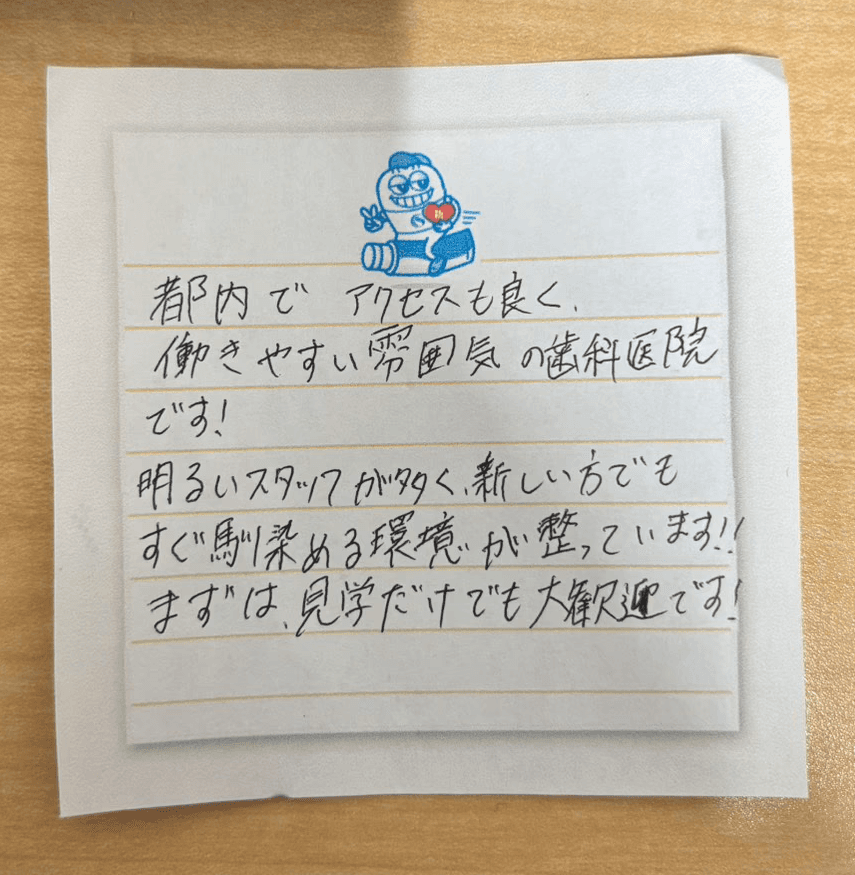 都内で アクセスも良く、
働きやすい雰囲気の歯科医院
です!
明るいスタッフが多く、新しい方でも
すぐ馴染める環境が整っています!!
まずは、見学だけでも大歓迎です!